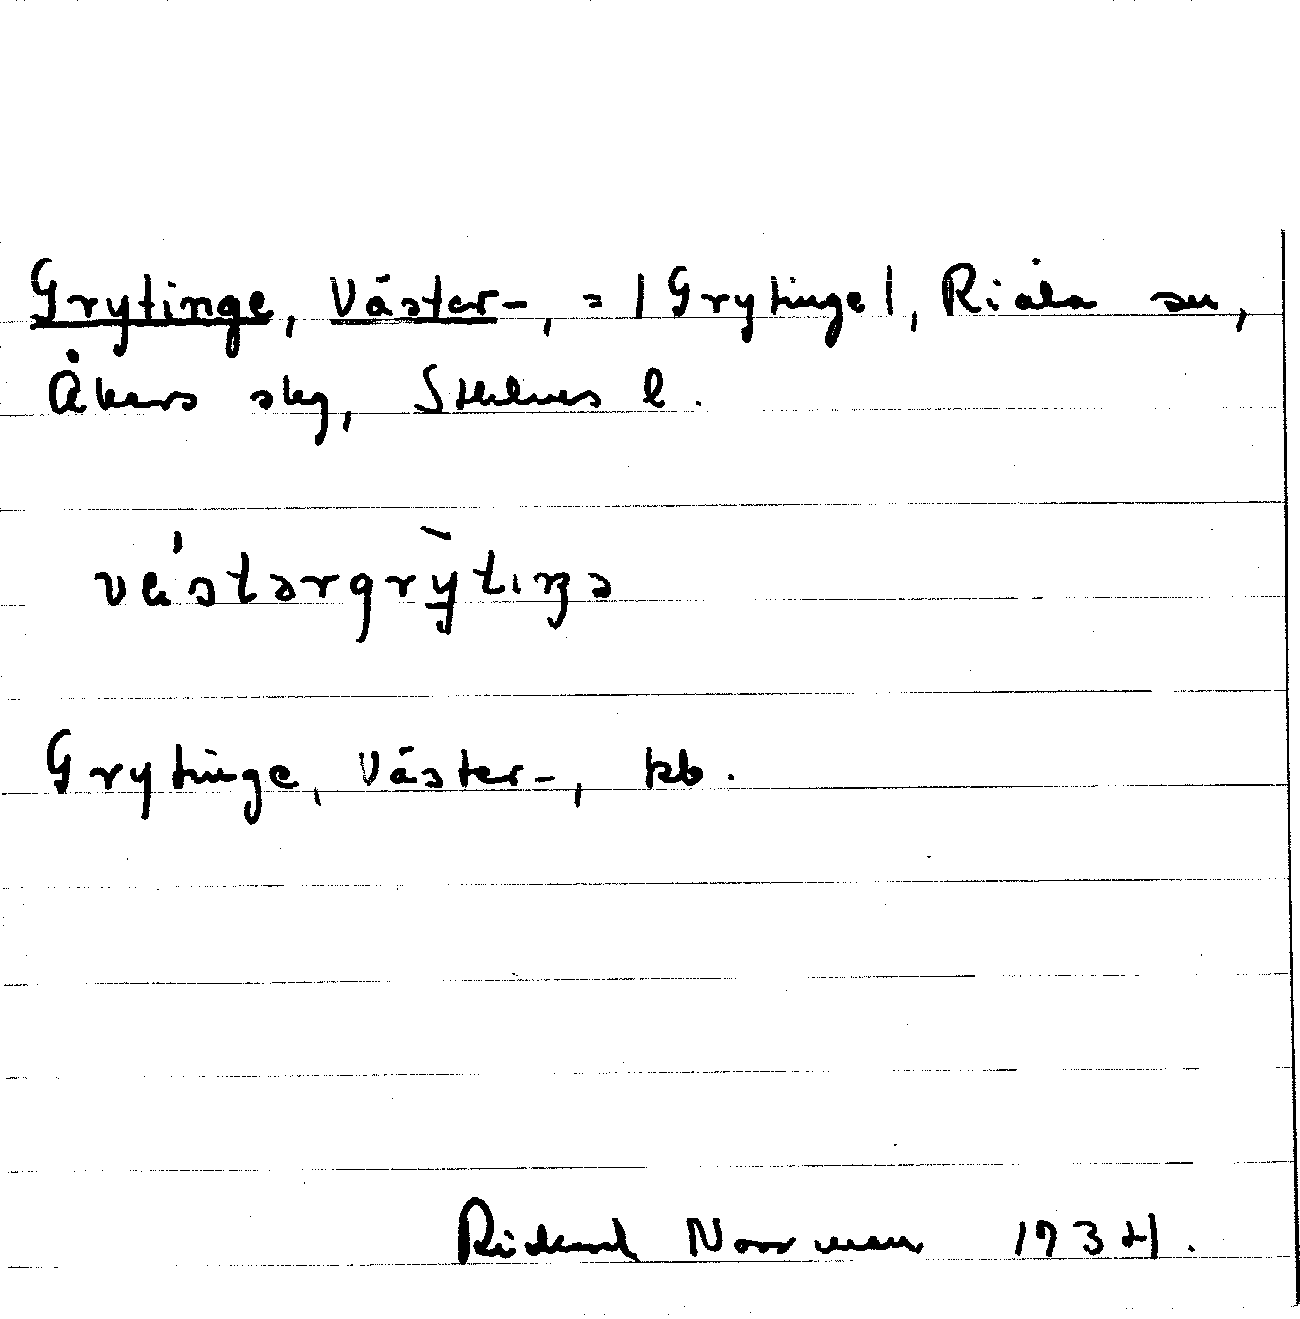 Grytinge, Väster-, = | Grytinge |, Riala sn,
Åkers skg, Sthlms l.
västərgrỳ̠tıŋə
Grytinge, Väster-, kb.
Rickard Norrman 1934.